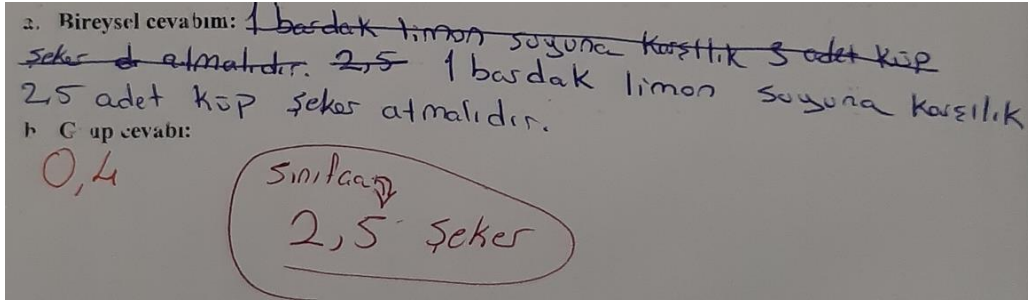 a. Bireysel cevabım: 1 bardak limon suyuna karşılık 3 adet küp
şeker atmalıdır. 2,5 1 bardak limon suyuna karşılık
2,5 adet küp şeker atmalıdır.
b G up cevabı:
0,4
Sınıfça
2,5 şeker